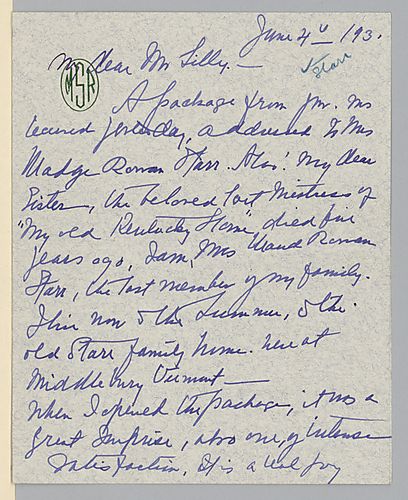 June 4th 193.
My dear Mr Lilly. —
Starr
MSR
A package from you. was
received yesterday, addressed to Mrs
Madge Rowan Starr. Alas! my dear
Sister, the beloved last Mistress of
"My old Kentucky Home", died five
years ago, I am, Mrs Maude Rowan
Starr, the last member of my family.
I live now & the Summer, & the
old Starr family home. here at
Middlebury Vermont —
When I opened the package, it was a
great surprise, also one, of intense
Satisfaction, It is a real joy